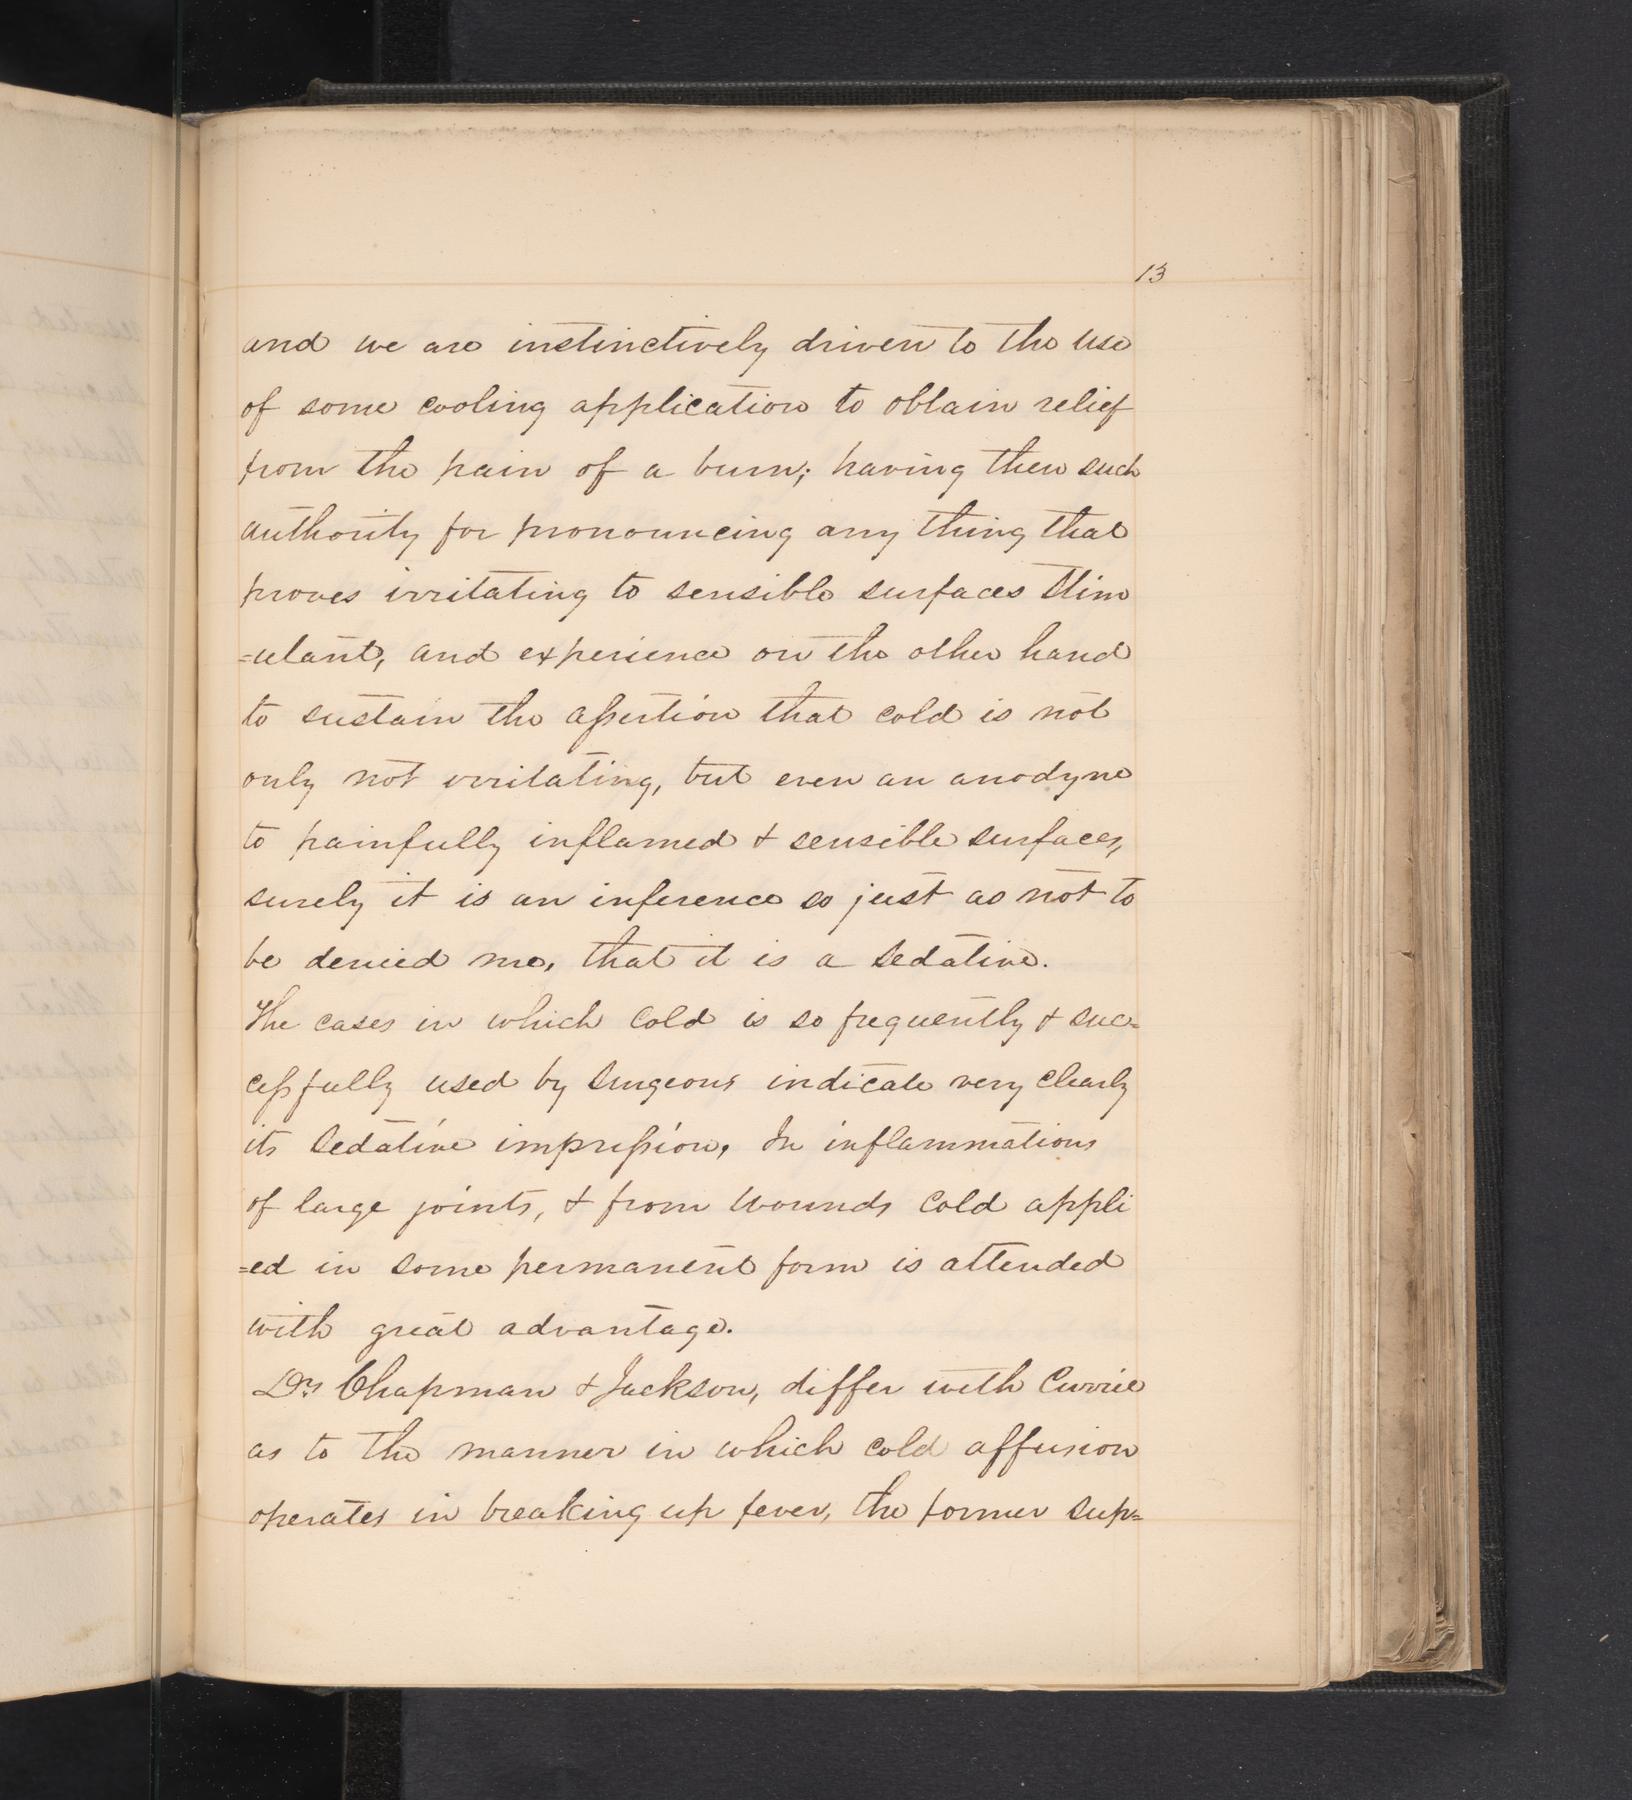 13
and we are instinctively driven to the use
of some cooling application to obtain relief
from the pain of a burn; having then such
authority for pronouncing any thing that
proves irritating to sensible surfaces stim
=ulant, and experience on the other hand
to sustain the assertion that cold is not
only not irritating, but even an anodyne
to painfully inflamed & sensible surfaces,
surely it is an inference so just as not to
be denied me, that it is a sedative.
The cases in which cold is so frequently & suc=
cessfully used by surgeons indicate very clearly
its sedative impression, In inflammations
of large joints, & from wounds cold appli
=ed in some permanent form is attended
with great advantage.
Drs Chapman & Jackson, differ with Currie
as to the manner in which cold affusion
operates in breaking up fever, the former sup=